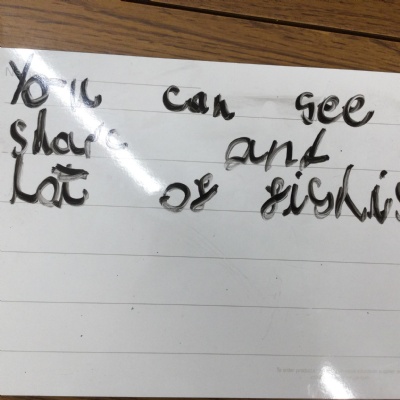 You can see
shark and
Lot of fishis